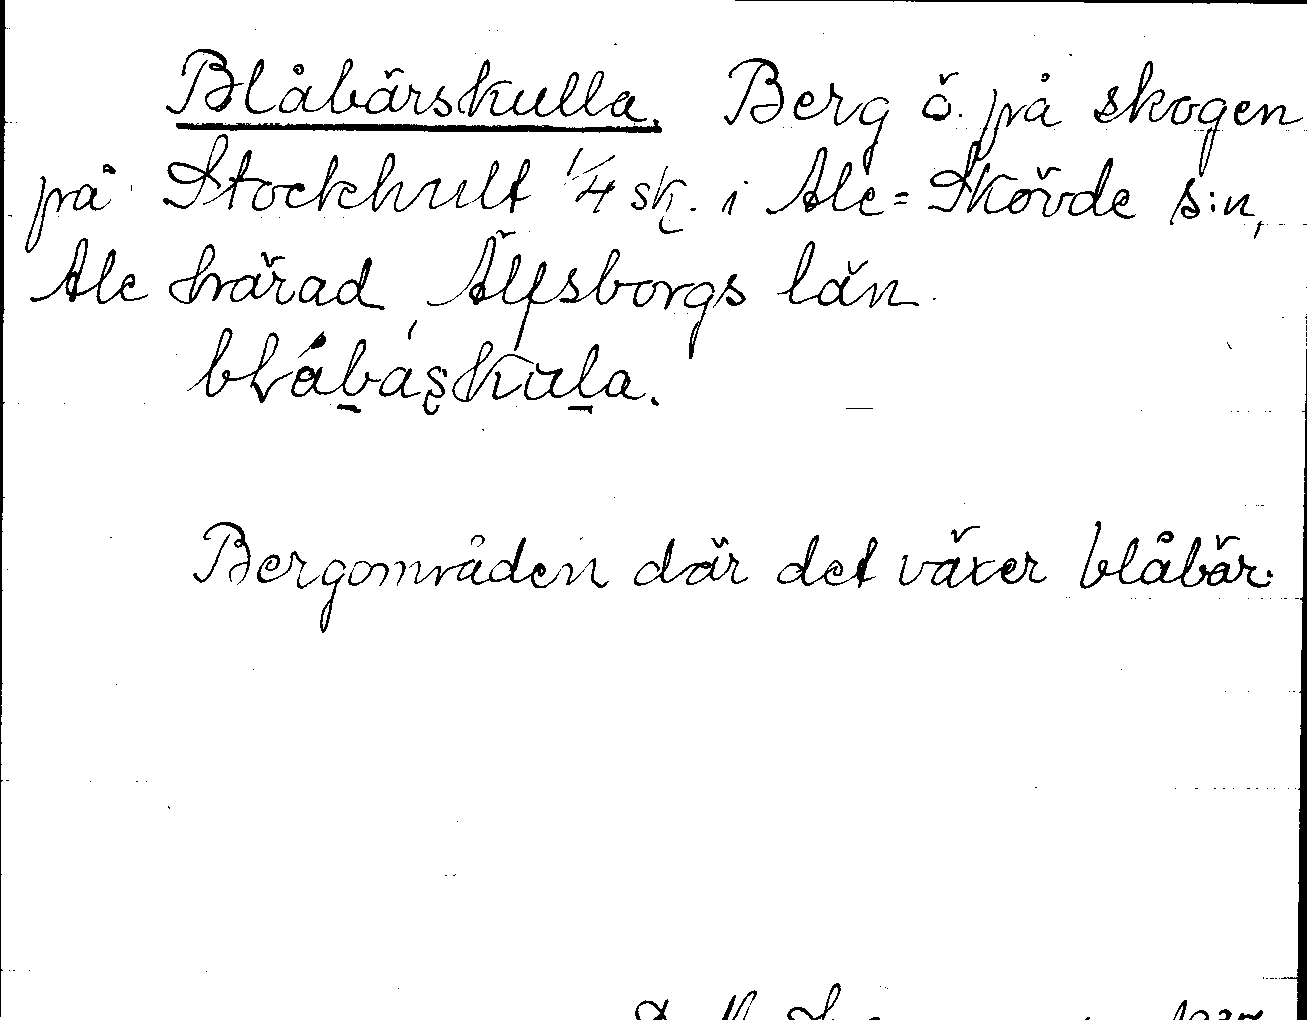 Blåbärskulla. Berg ö. på skogen
på Stockhult 1/4 sk. i Ale=Skövde s:n,
Ale härad, Älfsborgs län.
Bergområden där det växer blåbär.